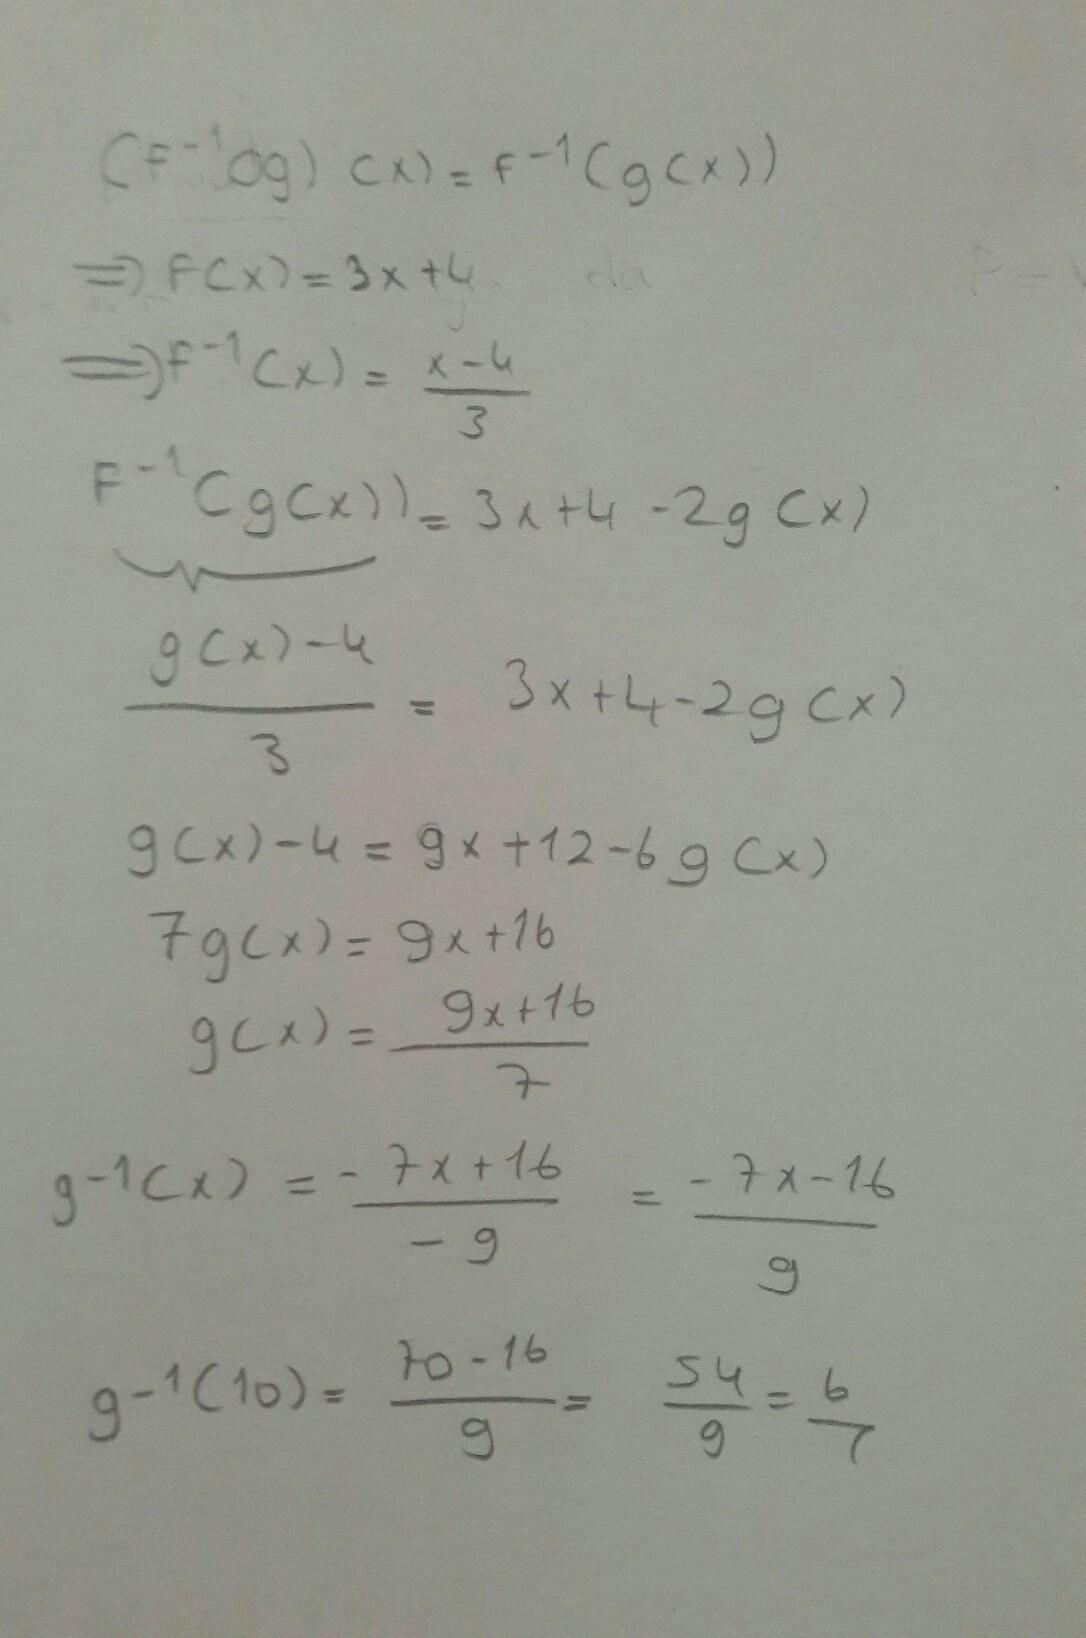 (F⁻¹og) (x) = F⁻¹(g(x))
⇒ F(x) = 3x+4 da
⇒ F⁻¹(x) = (x-4)/3
F⁻¹(g(x)) = 3x+4 -2g(x)
(g(x)-4)/3 = 3x+4-2g(x)
g(x)-4 = 9x+12-6g(x)
7g(x) = 9x+16
g(x) = (9x+16)/7
g⁻¹(x) = (-7x+16)/(-9) = (-7x-16)/9
g⁻¹(10) = (70-16)/9 = 54/9 = 6/7